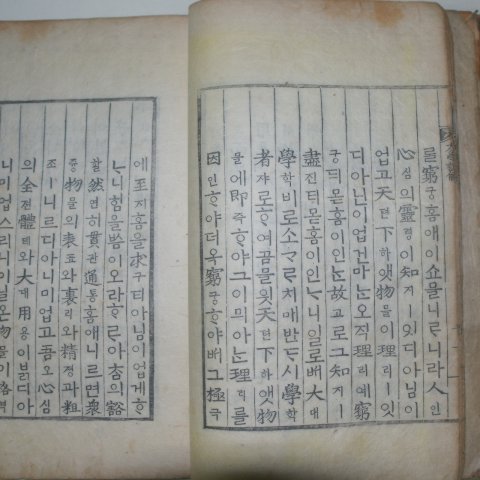 를窮궁홈애이쇼믈니르니라人인
心심의靈령이知지ㅣ잇디아님이
업고天텬下하앳物믈이理리ㅣ잇
디아닌이업건마ᄂᆞᆫ오직理리예窮
궁티몯홈이인ᄂᆞᆫ故고로그知지ㅣ
盡진티몯홈이인ᄂᆞ니일로ᄡᅥ大대
學학비로소ᄀᆞᄅᆞ치매반ᄃᆞ시學학
者쟈로ᄒᆞ여곰믈읫天텬下하앳物
믈에即즉ᄒᆞ야그이믜아ᄂᆞᆫ理리를
因인ᄒᆞ야더욱窮궁ᄒᆞ야ᄡᅥ그極극
에至지홈을求구티아님이업게ᄒᆞ
ᄂᆞ니힘을ᄡᅳᆷ이오란ᄒᆞᄅᆞ아ᄎᆞᆷ의豁
활然연히貫관通통홈애니르면衆
즁物믈의表표와裏리와精졍과粗
조ㅣ니르디아님이업고吾오心심
의全젼體톄와大대用용이ᄇᆞᆰ디아
니미업스리니닐온物믈이格격